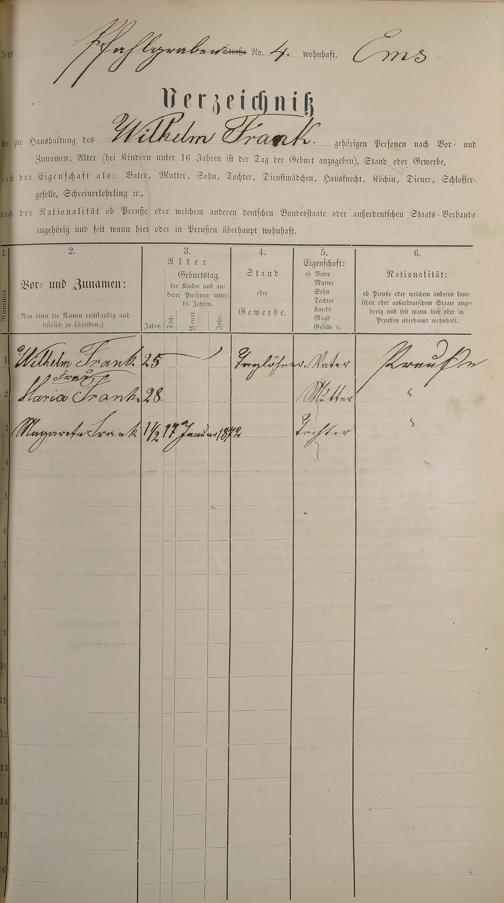 Jetzt Pfahlgraben Straße No. 4. wohnhaft. Ems
Verzeichniß
der zur Haushaltung des Wilhelm Frank. gehörigen Personen nach Vor- und
Zunamen, Alter (bei Kindern unter 16 Jahren ist der Tag der Geburt anzugeben), Stand oder Gewerbe,
nach der Eigenschaft als: Vater, Mutter, Sohn, Tochter, Dienstmädchen, Hausknecht, Köchin, Diener, Schlosser-
geselle, Schreinerlehrling ꝛc.,
nach der Nationalität ob Preuße oder welchem anderen deutschen Bundesstaate oder außerdeutschen Staats-Verbande
angehörig und seit wann hier oder in Preußen überhaupt wohnhaft.
1. 2. 3. 4. 5. 6.
Nummer.
Vor- und Zunamen:
(Man bittet die Namen vollständig und
leserlich zu schreiben.)
Alter
Geburtstag.
der Kinder und an-
derer Personen unter
16 Jahren.
Jahre. Tag. Monat. Jahr.
Stand
oder
Gewerbe.
Eigenschaft:
ob Vater
Mutter
Sohn
Tochter
Knecht
Magd
Geselle ꝛc.
Nationalität:
ob Preuße oder welchem anderen deut-
schen oder außerdeutschen Staate ange-
hörig und seit wann hier oder in
Preußen überhaupt wohnhaft.
1 Wilhelm Frank 25 Taglöhner Vater Preuße
Frau
2 Maria Frank 28 Mutter "
3 Magareta Frank 1/2 17 Januar 1872 Tochter "
4
5
6
7
8
9
10
11
12
13
14
15
16